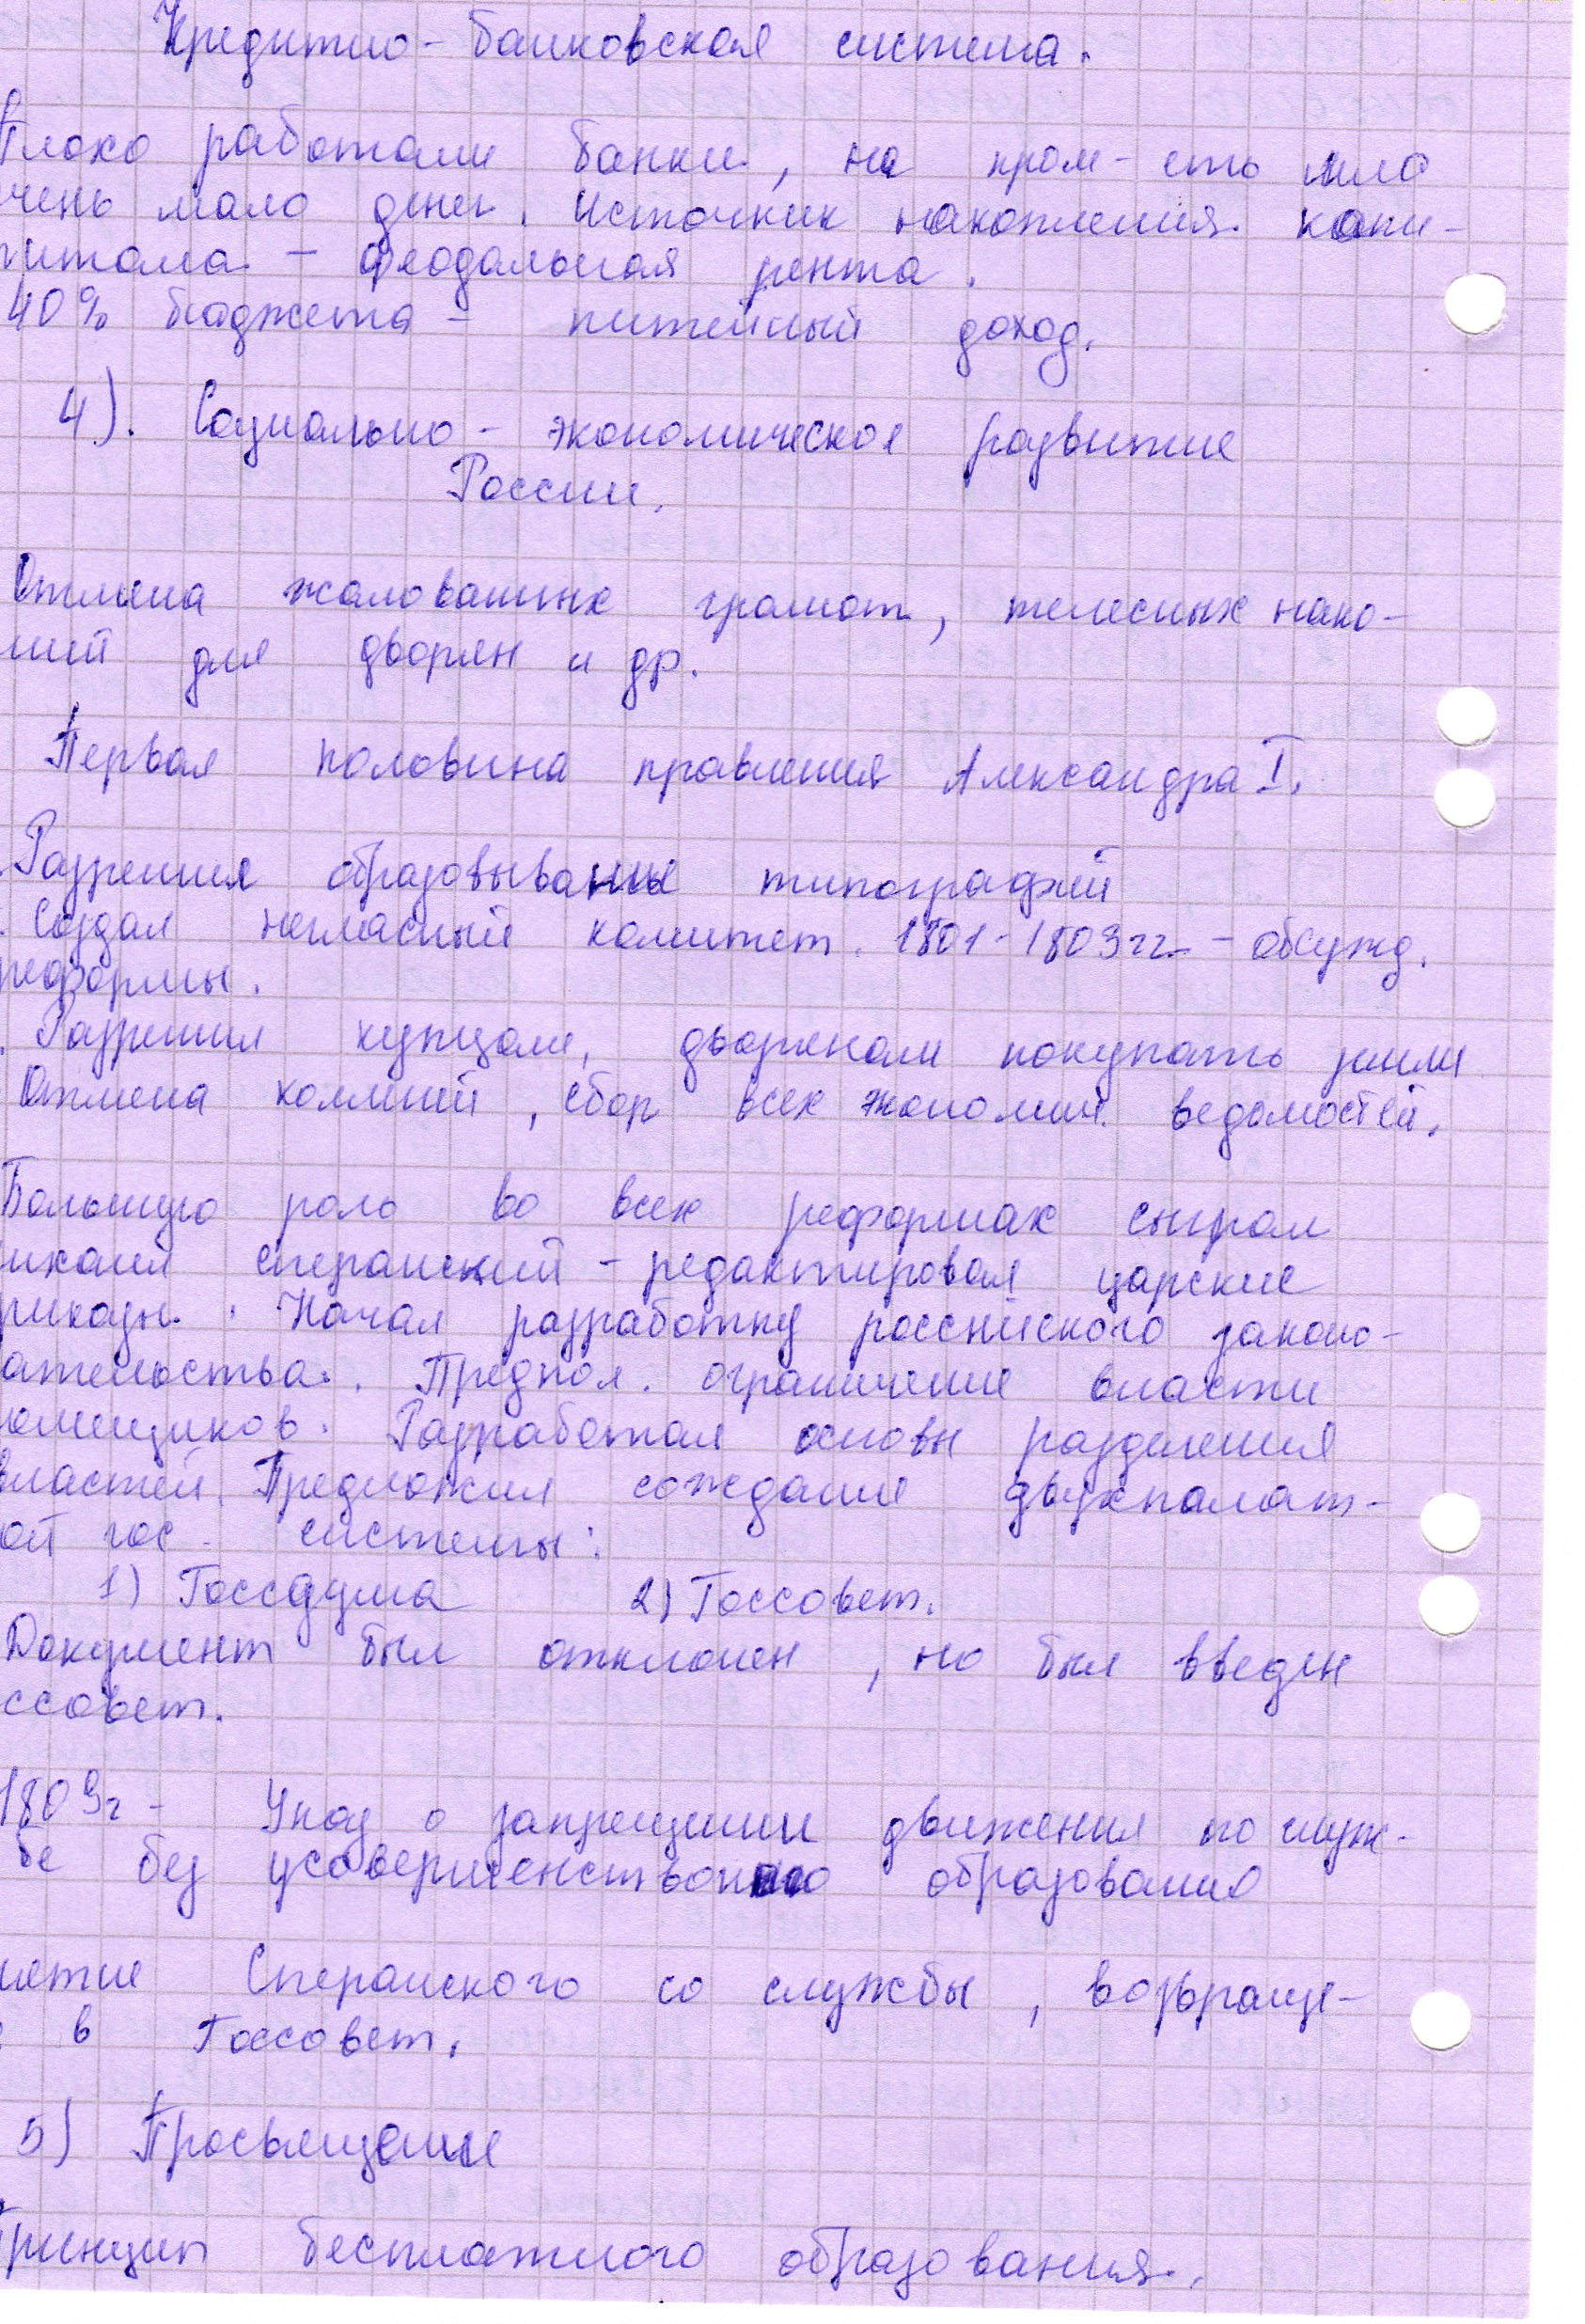 Кредитно-банковская система.
Плохо работали банки, на пром-сть шло
чень мало денег. Источник накопления капи-
питала - феодальная рента.
40% бюджета - питейный доход.
4). Социально-экономическое развитие
России.
Отмена жалованных грамот, телесных нака-
ний для дворян и др.
Первая половина правления Александра I.
Разрешил образовывание типографий
. Создал негласный комитет. 1801-1803 гг. - обсужд.
реформы.
. Разрешил купцам, дворянам покупать земли
Отмена коллегий, сбор всех эконом. ведомостей.
Большую роль во всех реформах сыграл
ихаил Сперанский - редактировал царские
риказы. Начал разработку российского законо-
ательства. Предпол. ограничение власти
омещиков. Разработал основы разделения
властей. Предложил сождание двухпалат-
ой гос. системы:
1) Госсдума 2) Госсовет.
Документ был отклонен, но был введен
ссовет.
1809г - Указ о запрещении движения по служ-
бе без усовершенственного образования
нятие Сперанского со службы, возвраще-
в Госсовет.
5) Просвещение
Принцип бесплатного образования.